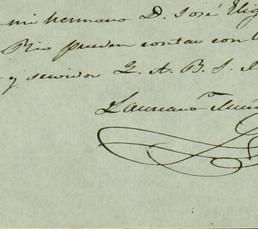 mi hermano D. José Elig
Rio puedan contar con
y servidor Q. B. S. M.
Laureano